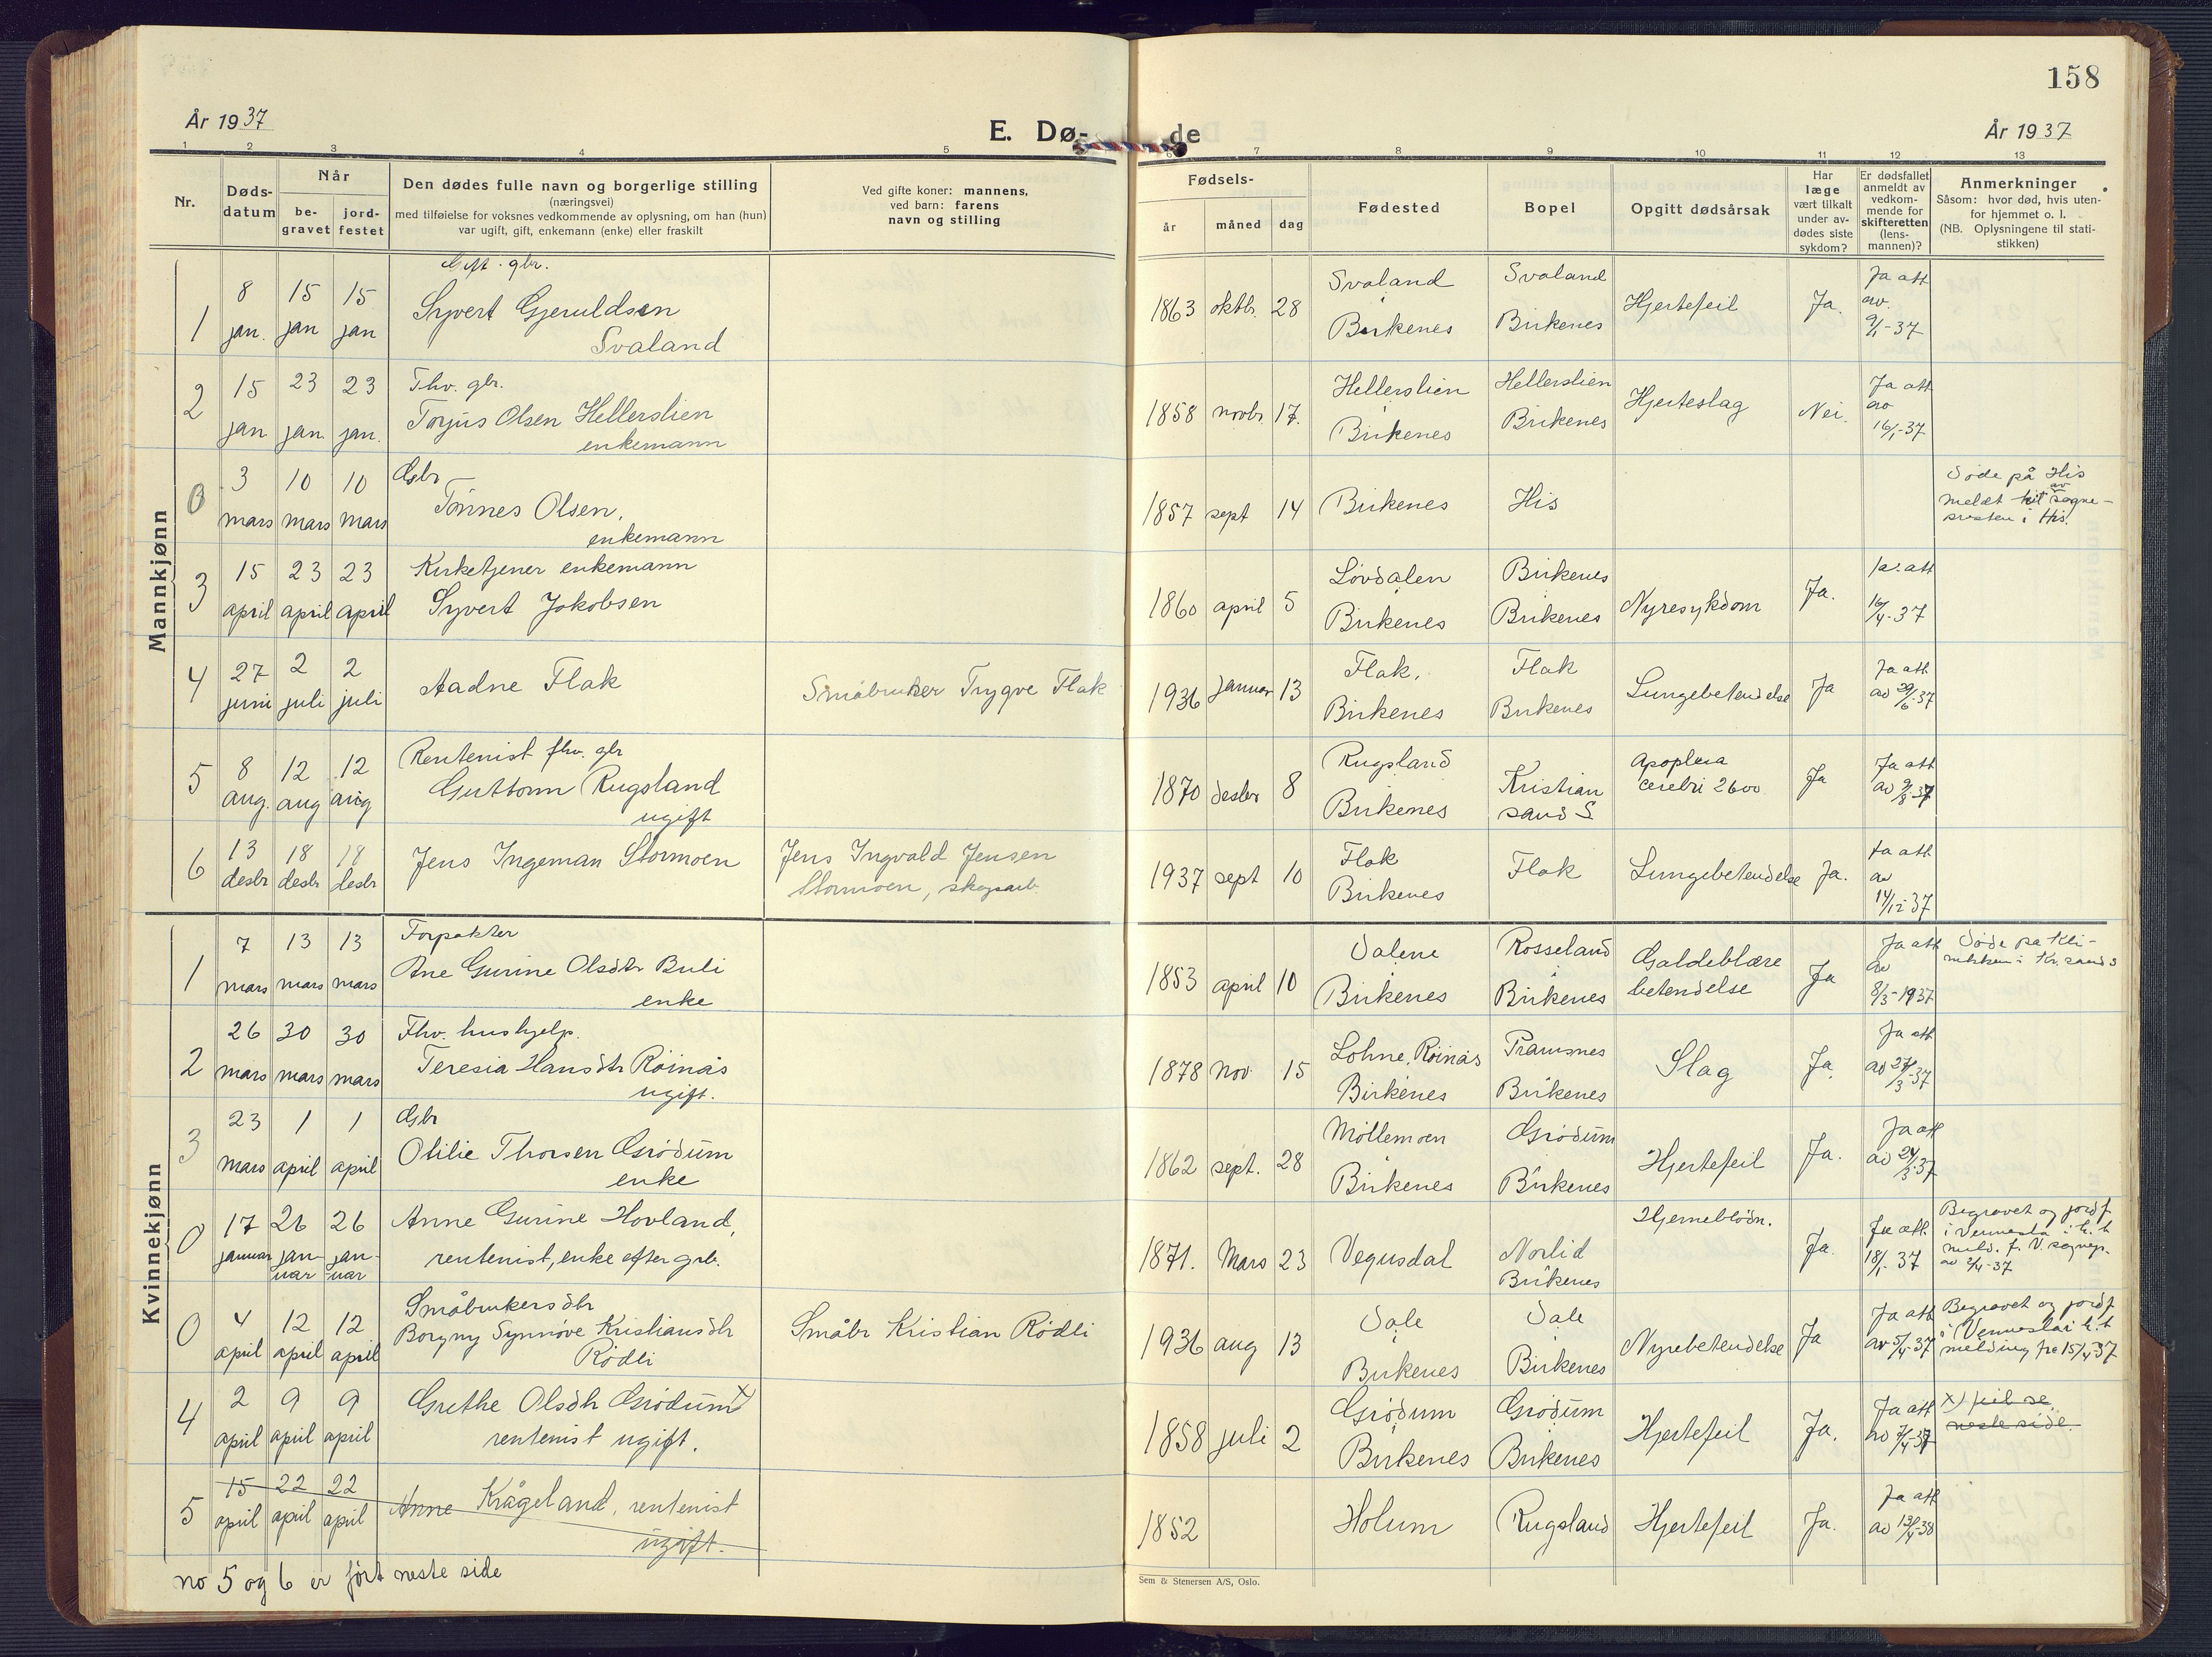 158
År 1937
E. Dø-
de
År 1937
1 2 3 4 5 6 7 8 9 10 11 12 13
Nr.
Døds-
datum
Når
be-
gravet
jord-
festet
Den dødes fulle navn og borgerlige stilling
(næringsvei)
med tilføielse for voksnes vedkommende av oplysning, om han (hun)
var ugift, gift, enkemann (enke) eller fraskilt
Ved gifte koner: mannens,
ved barn: farens
navn og stilling
Fødsels-
år måned dag
Fødested
Bopel
Opgitt dødsårsak
Har
læge
vært tilkalt
under av-
dødes siste
sykdom?
Er dødsfallet
anmeldt av
vedkom-
mende for
skifteretten
(lens-
mannen)?
Anmerkninger
Såsom: hvor død, hvis uten-
for hjemmet o. l.
(NB. Oplysningene til stati-
stikken)
Mannkjønn
1
8 jan.
15 jan
15 jan
Gift. gbr.
Syvert Gjeruldsen
Svaland
1863 oktb. 28
Svaland
Birkenes
Svaland
Birkenes
Hjertefeil
Ja.
Ja att
av.
9/1-37
2
15 jan
23 jan
23 jan.
Fhv. gbr.
Torjus Olsen Hellerslien
enkemann
1858 novbr. 17.
Hellerslien
Birkenes
Hellerslien
Birkenes
Hjerteslag
Nei.
Ja att
av
16/1-37
0
3 mars
10 mars
10 mars
Gbr
Tønnes Olsen,
enkemann
1857 sept 14
Birkenes
His
Døde på His
meldt hit av sogne-
presten i His.
3
15 april
23 april
23 april
Kirketjener enkemann
Syvert Jakobsen
1860 april 5
Løvdalen
Birkenes
Birkenes
Birkenes
Nyresykdom
Ja.
Ja. att
16/4-37
4
27 juni
2 juli
2 juli
Aadne Flak
Småbruker Trygve Flak
1936 januar 13
Flak,
Birkenes
Flak
Birkenes
Lungebetendelse
Ja
Ja att
av 29/6-37
5
8 aug.
12 aug
12 aug
Rentenist fhv. gbr
Guttorm Rugsland
ugift
1870 desbr 8
Rugsland
Birkenes
Kristian
sand S.
apoplexia
cerebri 2600
Ja
Ja att
av 9/8-37
6
13 desbr
18 desbr
18 desbr
Jens Ingeman Stormoen
Jens Ingvald Jensen
Stormoen, skogsarb.
1937 sept 10
Flak
Birkenes
Flak
Lungebetendelse
Ja.
Ja att
av
14/12-37
Kvinnekjønn
1
7 mars
13 mars
13 mars
Forpakter
Ane Gurine Olsdtr Buli
enke
1853 april 10
Dalene
Birkenes
Rosseland
Birkenes
Galdeblære
betendelse
Ja
Ja att
av
8/3-1937
Døde på kli-
nikken i Kr.sand S
2
26 mars
30 mars
30 mars
Fhv. hushjelp.
Teresia Hansdtr Röinås
ugift.
1878 nov 15
Lohne, Röinås
Birkenes
Tramsnes
Birkenes
Slag
Ja.
Ja att
av 27/3-37
3
23 mars
1 april
1 april
Gbr
Otilie Thorsen Grödum
enke
1862 sept. 28
Möllemoen
Birkenes
Grödum
Birkenes
Hjertefeil
Ja.
Ja att
av 24/3-37
0
17 januar
26 jan-
uar
26 jan-
uar
Anne Gurine Hovland,
rentenist, enke efter grb.
1871. Mars 23
Vegusdal
Norlid
Birkenes
Hjerneblödn.
Ja.
Ja att.
18/1-37
Begravet og jordf.
i Vennesla i h. t
meld. f. V. sognep.
av 2/4-37
0
4 april
12 april
12 april
Småbrukersdtr
Borgny Synnöve Kristiansdtr
Rödli
Småbr Kristian Rödli
1936 aug 13
Dale
Birkenes
Dale
Birkenes
Nyrebetendelse
Ja
Ja att
av 5/4-37
Begravet og jordf
i Vennesla i h. t
melding fra 15/4 37
4
2 april
9 april
9 april
Grethe Olsdtr Grödum x
rentenist ugift.
1858 juli 2
Grödum
Birkenes
Grödum
Birkenes
Hjertefeil
Ja.
Ja att
av 3/4-37
x) feil se
neste side.
5
15 april
22 april
22 april
Anne Krågeland, rentenist
ugift.
1852
Holum
Rugsland
Hjertefeil
Ja.
Ja att
av 13/4-38
no 5 og 6 er fört neste side
Sem & Stenersen A/S, Oslo.